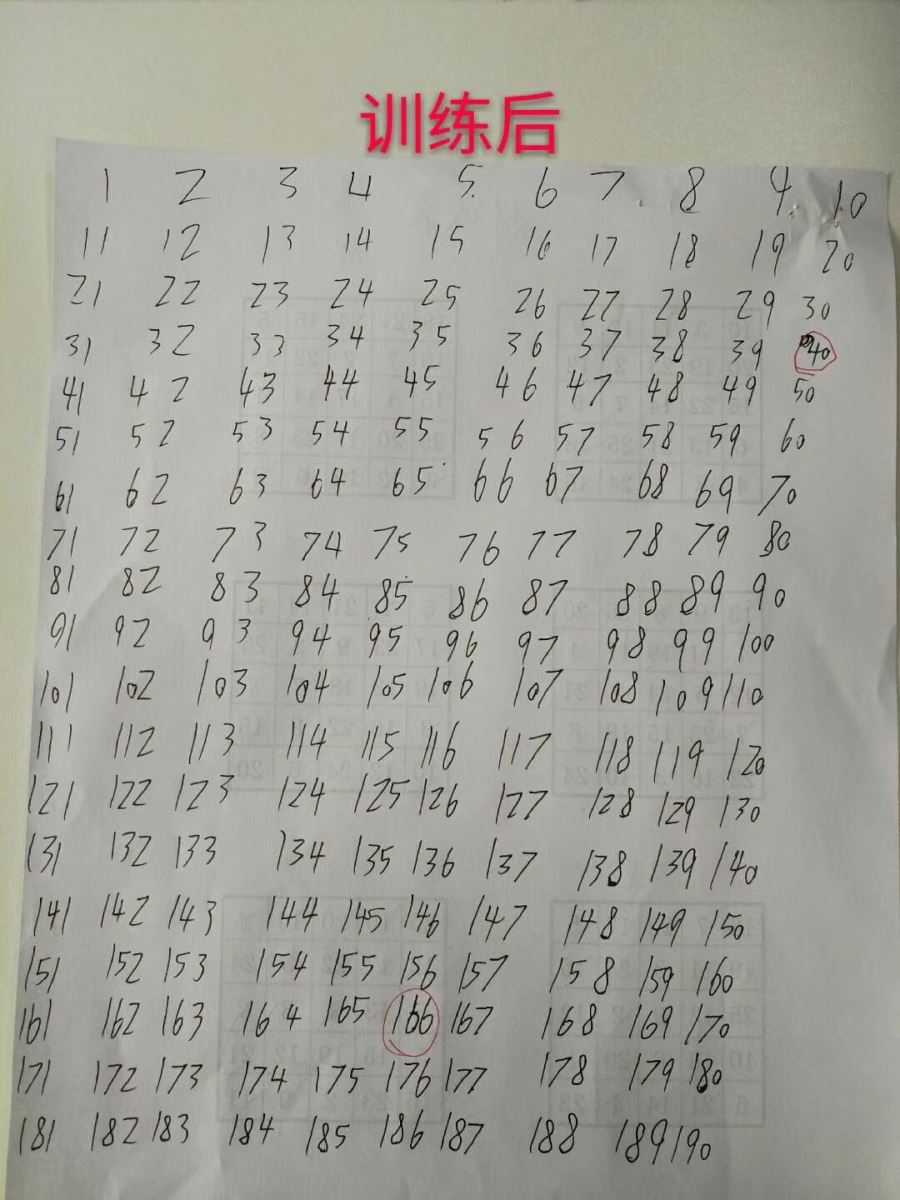 训练后
1 2 3 4 5 6 7 8 9 10
11 12 13 14 15 16 17 18 19 20
21 22 23 24 25 26 27 28 29 30
31 32 33 34 35 36 37 38 39 40
41 42 43 44 45 46 47 48 49 50
51 52 53 54 55 56 57 58 59 60
61 62 63 64 65 66 67 68 69 70
71 72 73 74 75 76 77 78 79 80
81 82 83 84 85 86 87 88 89 90
91 92 93 94 95 96 97 98 99 100
101 102 103 104 105 106 107 108 109 110
111 112 113 114 115 116 117 118 119 120
121 122 123 124 125 126 127 128 129 130
131 132 133 134 135 136 137 138 139 140
141 142 143 144 145 146 147 148 149 150
151 152 153 154 155 156 157 158 159 160
161 162 163 164 165 166 167 168 169 170
171 172 173 174 175 176 177 178 179 180
181 182 183 184 185 186 187 188 189 190